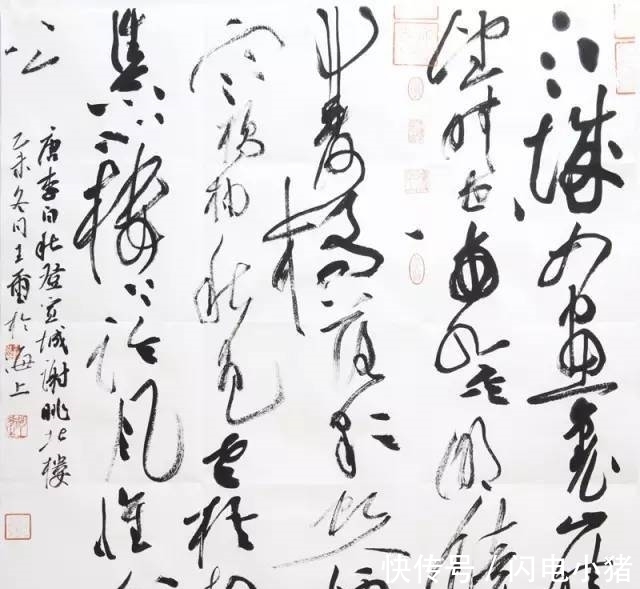 江城如画裏山
望晴空两水夹明镜
双桥落彩虹
寒橘柚秋色老梧桐
谁念北楼上临风怀
公
唐李白秋登宣城谢朓北楼
乙未冬月王爾於海上
快传号 / 闪电小猪